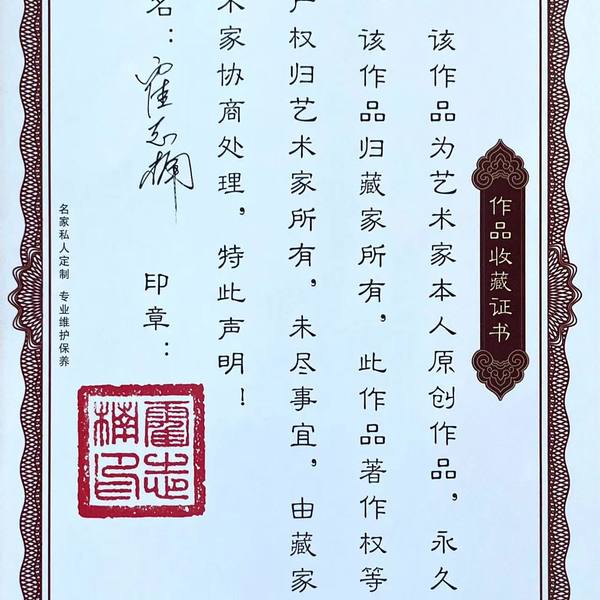 作品收藏证书
该作品为艺术家本人原创作品，永久
该作品归藏家所有，此作品著作权等
产权归艺术家所有，未尽事宜，由藏家
术家协商处理，特此声明！
名：霍志楠
印章：
霍志楠印
名家私人定制 专业维护保养